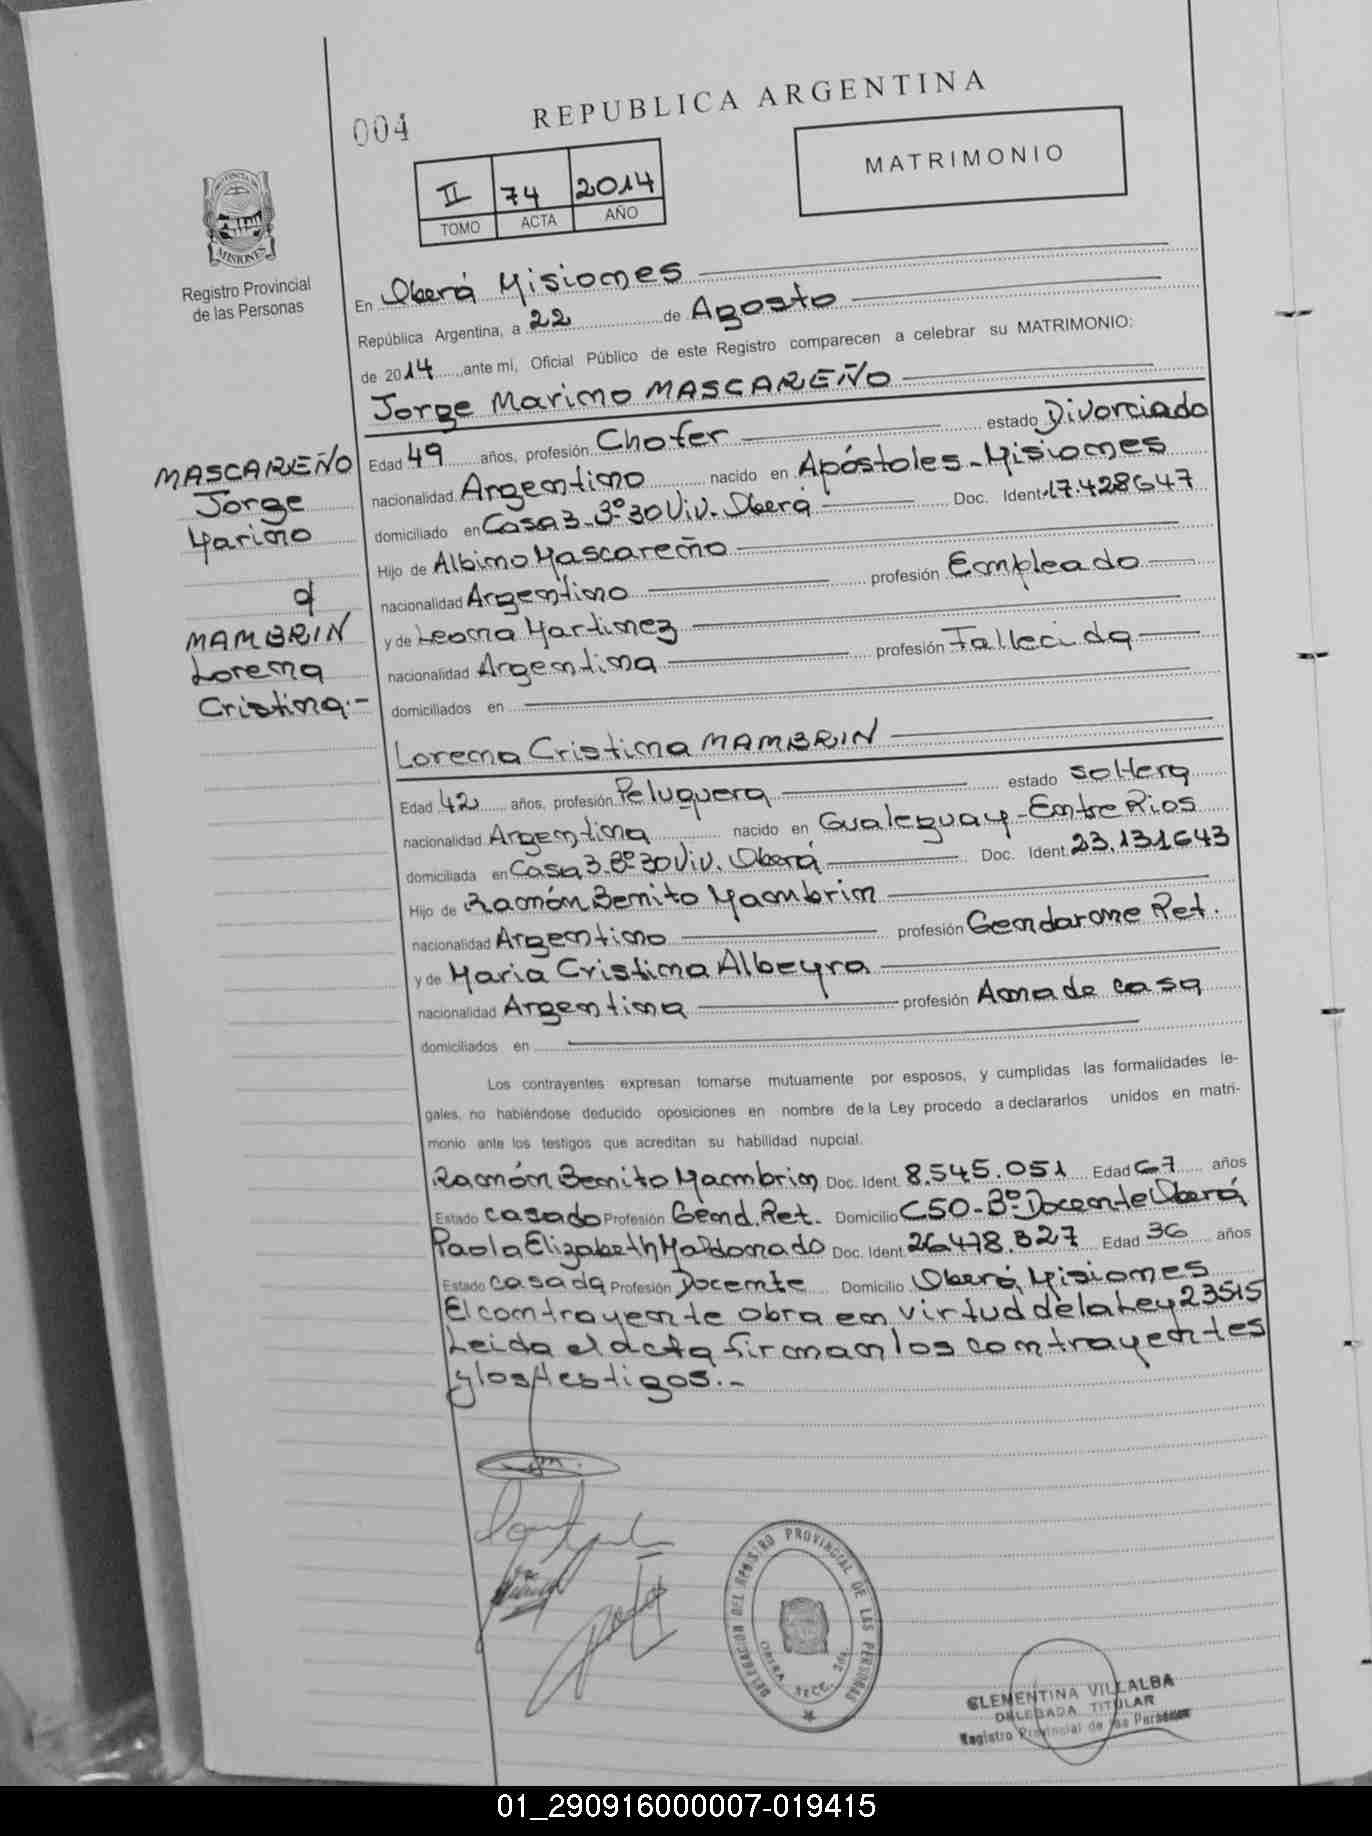 REPUBLICA ARGENTINA
004
MATRIMONIO
II 74 2014
TOMO ACTA AÑO
Registro Provincial
de las Personas
MISIONES
En Oberá Misiones
República Argentina, a 22 de Agosto
de 2014, ante mí, Oficial Público de este Registro comparecen a celebrar su MATRIMONIO:
Jorge Marino MASCAREÑO
MASCAREÑO
Jorge
Marino
c/
MAMBRIN
Lorena
Cristina.-
Edad 49 años, profesión Chofer estado Divorciado
nacionalidad Argentino nacido en Apóstoles - Misiones
domiciliado en Casa 3-Bº 30 Viv. Oberá Doc. Ident. 17.428647
Hijo de Albino Mascareño
nacionalidad Argentino profesión Empleado
y de Leona Martinez
nacionalidad Argentina profesión Fallecida
domiciliados en
Lorena Cristina MAMBRIN
Edad 42 años, profesión Peluquera estado soltera
nacionalidad Argentina nacido en Gualeguay - Entre Rios
domiciliada en Casa 3-Bº 30 Viv. Oberá Doc. Ident. 23.131643
Hijo de Ramón Benito Mambrin
nacionalidad Argentino profesión Gendarme Ret.
y de Maria Cristina Albeyra
nacionalidad Argentina profesión Ama de casa
domiciliados en
Los contrayentes expresan tomarse mutuamente por esposos, y cumplidas las formalidades le-
gales, no habiéndose deducido oposiciones en nombre de la Ley procedo a declararlos unidos en matri-
monio ante los testigos que acreditan su habilidad nupcial.
Ramón Benito Mambrin Doc. Ident. 8.545.051 Edad 67 años
Estado casado Profesión Gend. Ret. Domicilio C50-Bº Docente Oberá
Paola Elizabeth Maldonado Doc. Ident. 26.478.827 Edad 36 años
Estado casada Profesión Docente Domicilio Oberá, Misiones
El contrayente obra en virtud de la Ley 23515
Leida el acta firman los contrayentes
y los testigos.-
DELEGACION DEL REGISTRO PROVINCIAL DE LAS PERSONAS
OBERA SECC. 2da.
CLEMENTINA VILLALBA
DELEGADA TITULAR
Registro Provincial de las Personas
01_290916000007-019415